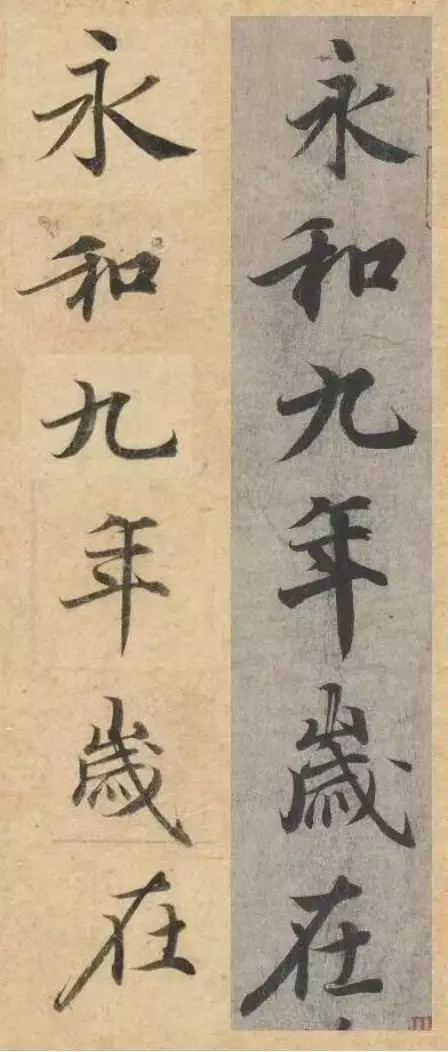 永和九年歲在
永和九年歲在